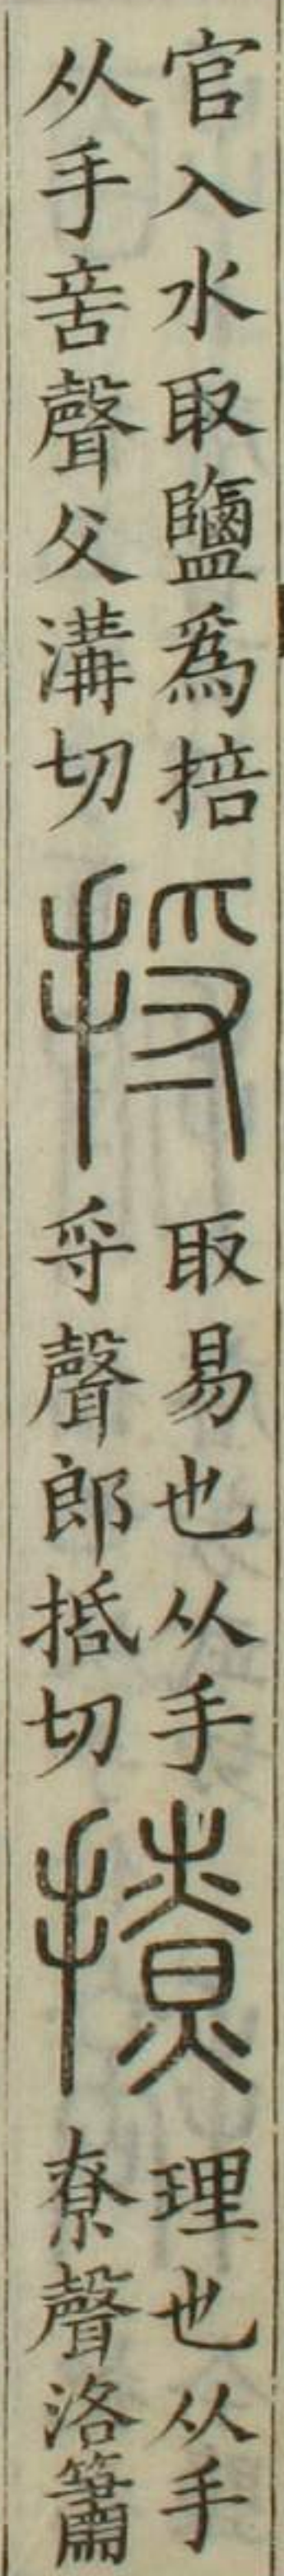 官入水取鹽爲掊
从手咅聲父溝切
捋
取易也从手
寽聲郎括切
撩
理也从手
尞聲洛簫